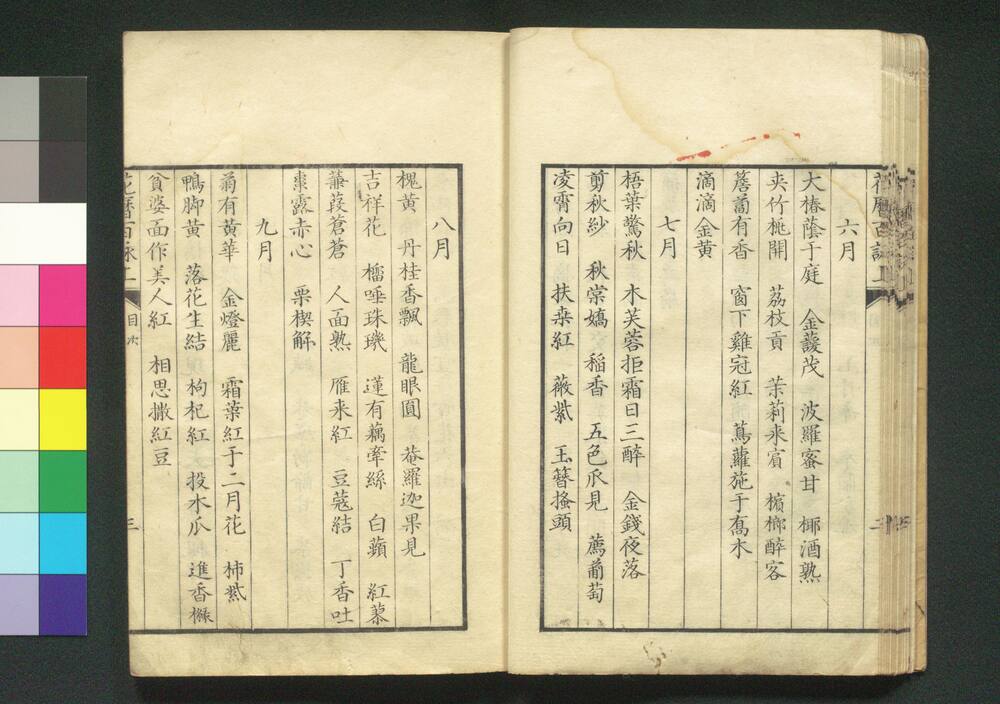 六月
大椿蔭于庭　金薆茂　波羅蜜甘　椰酒熟
夾竹桃開　荔枝貢　茉莉來賓　檳榔醉客
薝蔔有香　窗下雞冠紅　蔦蘿施于喬木
滴滴金黃
七月
梧葉驚秋　木芙蓉拒霜日三醉　金錢夜落
剪秋紗　秋棠嬌　稻香　五色爪見　薦葡萄
凌霄向日　扶桒紅　薇紫　玉簪搔頭
八月
槐黃　丹桂香飄　龍眼圓　菴羅迦果見
吉祥花　檑唾珠璣　蓮有藕牽絲　白蘋　紅蓼
蒹葭蒼蒼　人面熟　雁来紅　豆蔻結　丁香吐
棗露赤心　栗楔解
九月
菊有黃華　金燈麗　霜葉紅于二月花　柿紫
鴨脚黃　落花生結　枸杞紅　投木瓜　進香櫞
貧婆面作美人紅　相思撒紅豆
花曆百詠上　目次　三